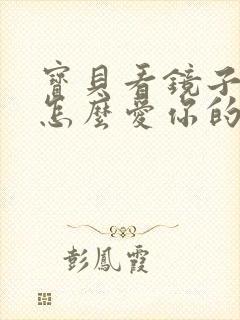 寶貝看鏡子
怎麼愛你的
彭鳳霞